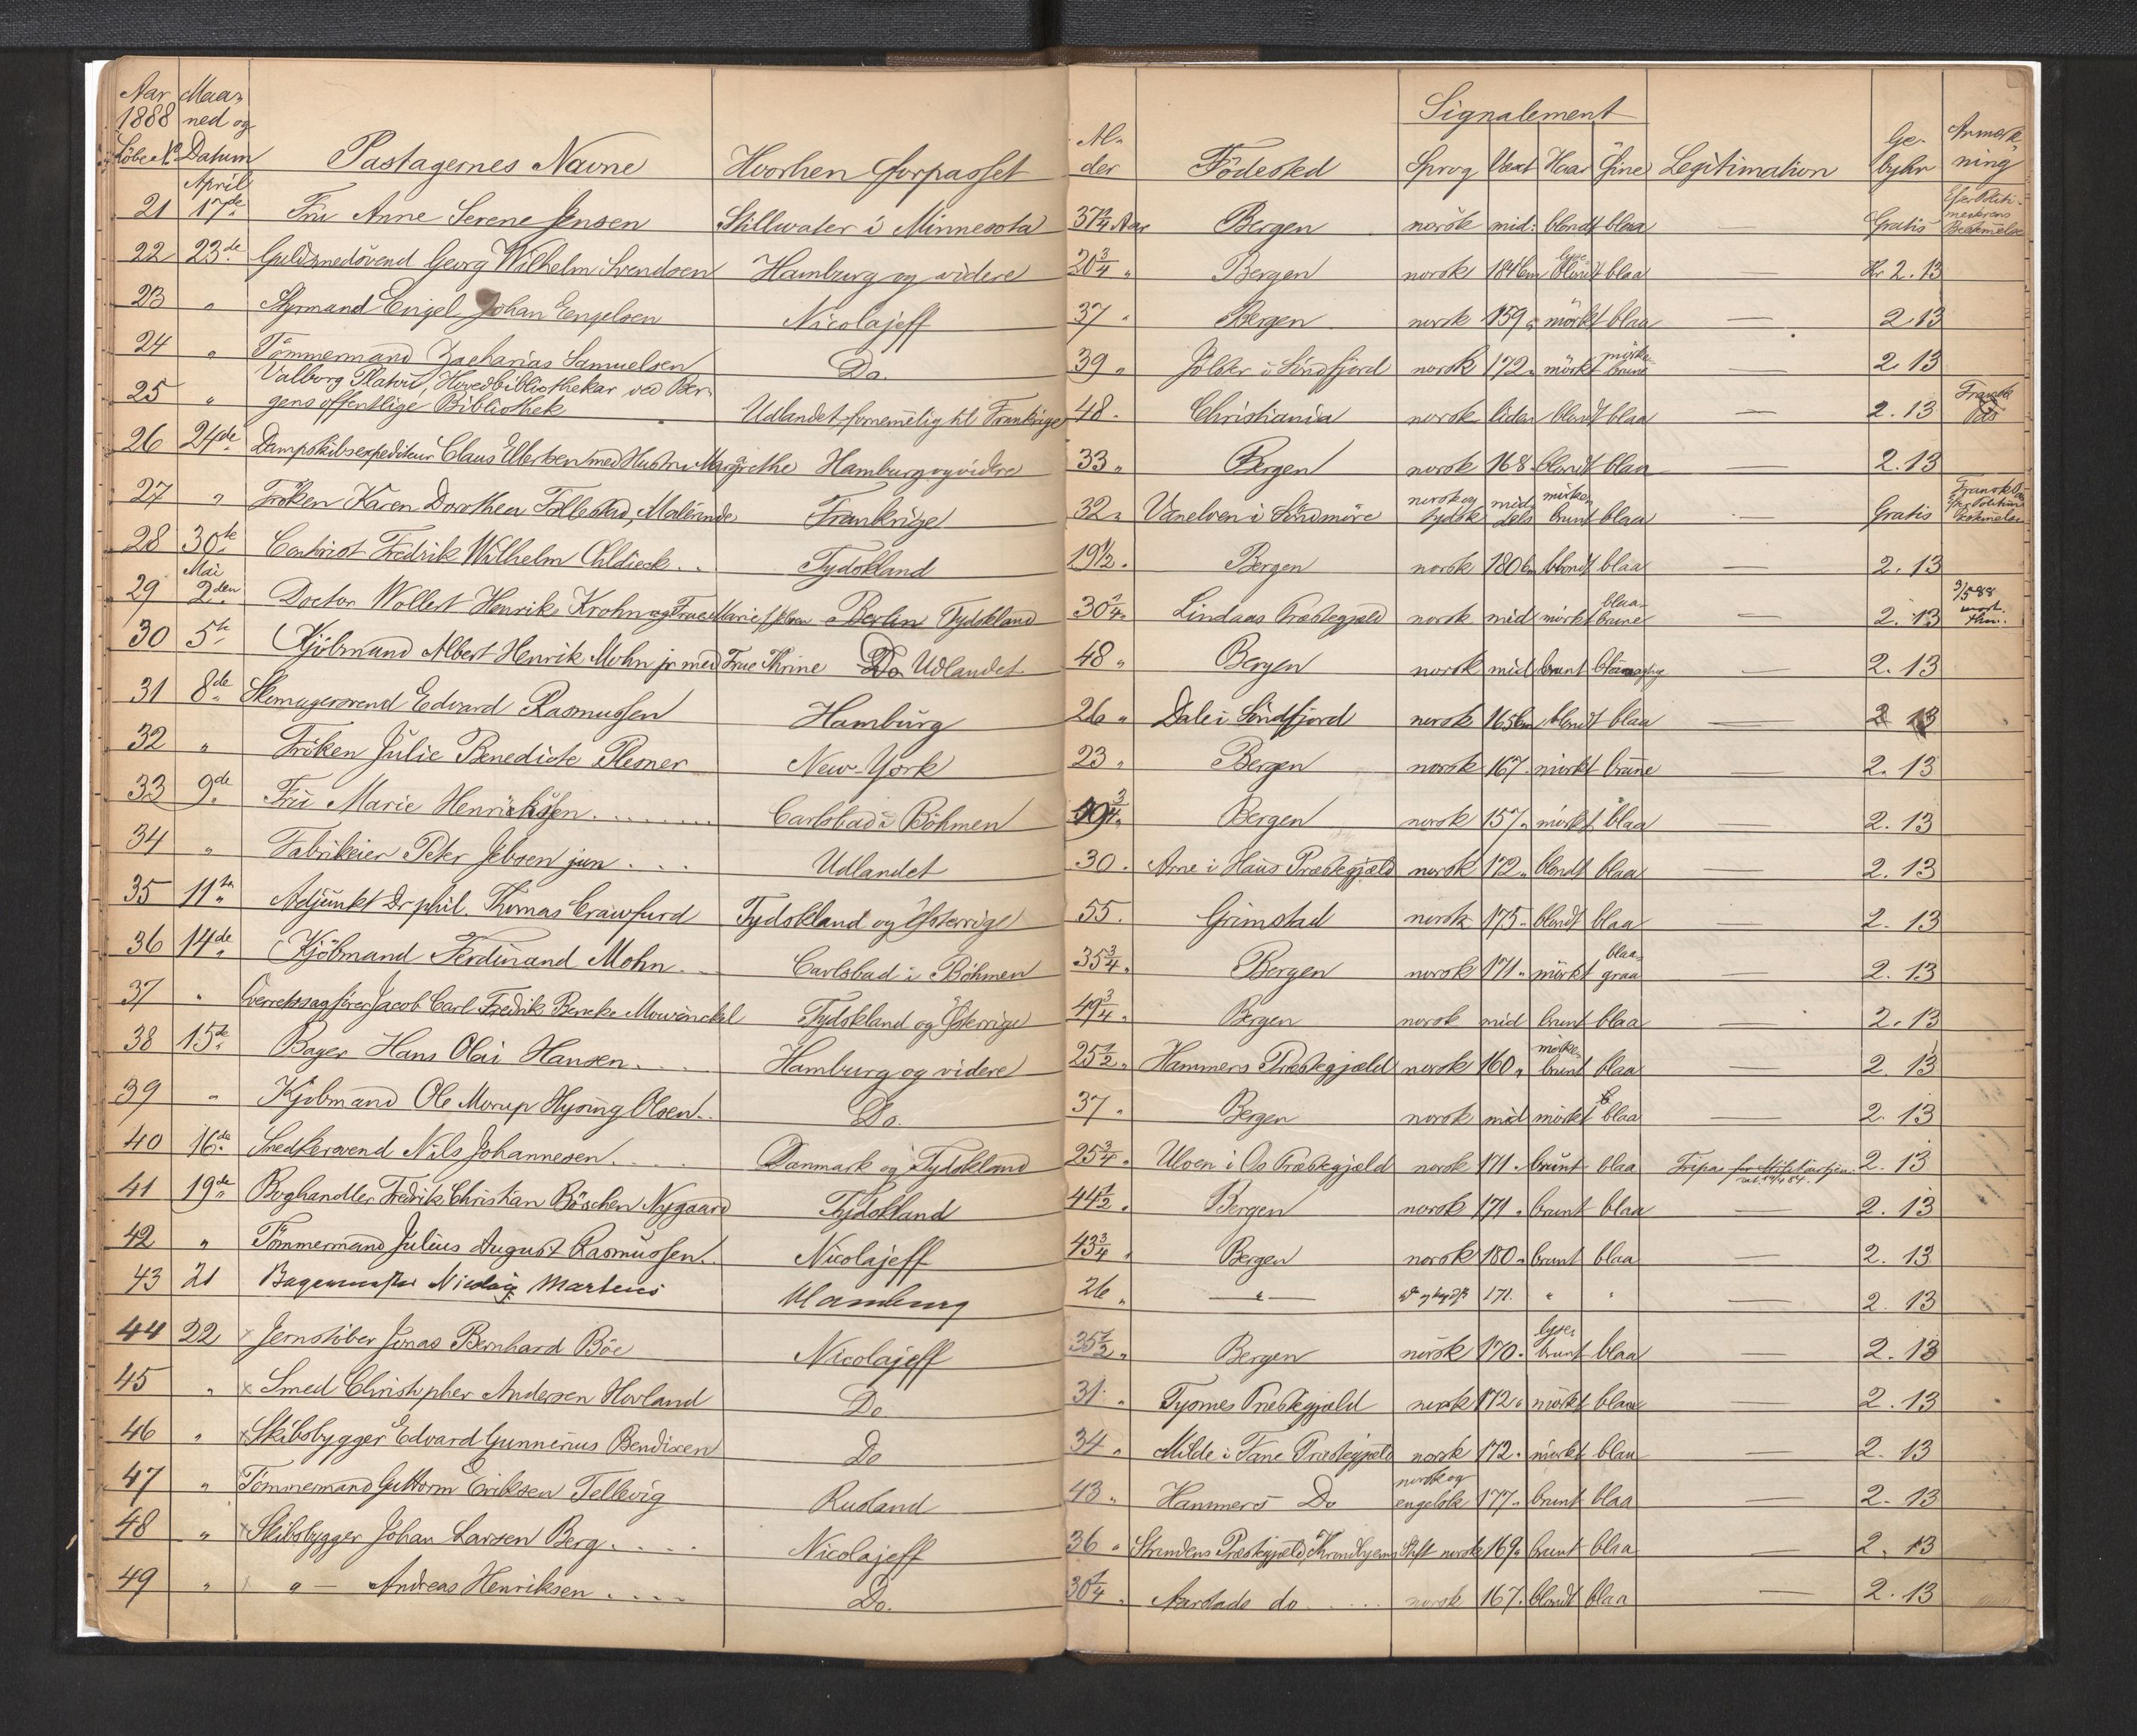 Aar 1888 Löbe No Maaned og Datum Pastagernes Navne Hvorhen forpasset Alder Födested Signalement Sprog Vext Haar Öine Legitimation Gebyhr Anmærkning
21 April 17de Fru Anne Serene Jensen Stillwater i Minnesota 37 1/4 Aar Bergen norsk mid: blondt blaa Gratis Efter Politimesterens Bestemmelse
22 23de Guldsmedsvend Georg Wilhelm Svendsen Hamburg og videre 20 3/4 " Bergen norsk 184 cm lyse blondt blaa — Kr 2.13
23 " Styrmand Engel Johan Engelsen Nicolajeff 37 " Bergen norsk 159 " mörkt blaa — 2.13
24 " Tömmermand Zacharias Samuelsen Do. 39 " Jölster i Söndfjord norsk 172 " mörkt mörke brune — 2.13
25 " Valborg Platou, Hovedbibliothekar ved Bergens offentlige Bibliothek Udlandet fornemelig til Frankrige 48 " Christiania norsk liden blondt blaa — 2.13 Fransk Pas
26 24de Dampskibsexpediteur Claus Ellertsen med Hustru Margrethe Hamburg og videre 33 " Bergen norsk 168 " blondt blaa — 2.13
27 " Fröken Karen Dorothea Follestad, Malerinde Frankrige 32 " Vanelven i Söndmöre norsk og tydsk middels mörke brunt blaa Gratis Fransk Pas efter Politim Bestemmelse
28 30te Contorist Fredrik Wilhelm Ohldieck . . Tydskland 19 1/2 " Bergen norsk 180 cm blondt blaa — 2.13
29 Mai 2den Doctor Wollert Henrik Krohn og Frue Marie Berlin Tydskland 30 1/4 " Lindaas Præstegjæld norsk mid mörkt blaa brune 2.13 3/5 88
30 5te Kjöbmand Albert Henrik Mohn jr med Frue Thrine Do Udlandet 48 " Bergen norsk mid brunt — 2.13
31 8de Skomagersvend Edvard Rasmussen Hamburg 26 " Dale i Söndfjord norsk 165 cm blondt blaa — 2 13
32 " Fröken Julie Benedicte Plesner New-York 23 " Bergen norsk 167 " mörkt brune — 2.13
33 9de Fru Marie Henrikssen . . . . Carlsbad i Böhmen 49 3/4 " Bergen norsk 157 " mörkt blaa — 2.13
34 " Fabrikeier Peter Jebsen jun . . . Udlandet 30 " Arne i Haus Præstegjæld norsk 172 " blondt blaa — 2.13
35 11te Adjunkt Dr phil. Thomas Crawfurd Tydskland og Österrige 55 " Grimstad norsk 175 " blondt blaa — 2.13
36 14de Kjöbmand Ferdinand Mohn . . Carlsbad i Böhmen 35 3/4 " Bergen norsk 171 " mörkt blaa graa — 2.13
37 " Overretssagförer Jacob Carl Fredrik Beneke Mowinckel Tydskland og Österrige 49 3/4 " Bergen norsk mid brunt blaa — 2.13
38 15de Bager Hans Olai Hansen . . . Hamburg og videre 25 1/2 " Hammers Præstegjæld norsk 160 " mörke brunt blaa — 2.13
39 " Kjöbmand Ole Morup Hysing Olsen . . Do. 37 " Bergen norsk mid mörkt blaa — 2.13
40 16de Snedkersvend Nils Johannesen . . . Danmark og Tydskland 25 3/4 " Ulven i Os Præstegjæld norsk 171 " brunt blaa Fripas for 2.13
41 19de Boghandler Fredrik Christian Börschen Nygaard Tydskland 44 1/2 " Bergen norsk 171 " brunt blaa — 2.13
42 " Tömmermand Julius August Rasmussen . . Nicolajeff 43 3/4 " Bergen norsk 180 " brunt blaa — 2.13
43 21 Bagermester Nicolaij Martens Hamburg 26 " — " — 171 " " — 2.13
44 22 x Jernstöber Jonas Bernhard Böe Nicolajeff 35 1/2 " Bergen norsk 170 " lyse brunt blaa — 2.13
45 " x Smed Christopher Andersen Hovland Do 31 " Tysnes Præstegjæld norsk 172 " mörkt blaa — 2.13
46 " x Skibsbygger Edvard Gunnerius Bendixen Do 34 " Milde i Fane Præstegjæld norsk 172 " mörkt blaa — 2.13
47 " Tömmermand Guttorm Eriksen Tellevig Rusland 43 " Hammers Do norsk og engelsk 177 " brunt blaa — 2.13
48 " x Skibsbygger Johan Larsen Berg . . . . Nicolajeff 36 " Strindens Præstegjæld, Throndhjems Stift norsk 169 " brunt blaa — 2.13
49 " x " — Andreas Henriksen . . . . Do. 30 1/4 " Aarstads do . . . . norsk 167 " blondt blaa — 2.13